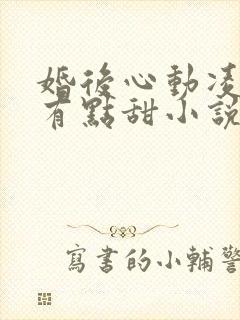 婚後心動凌
有點甜小說
寫書的小輔警